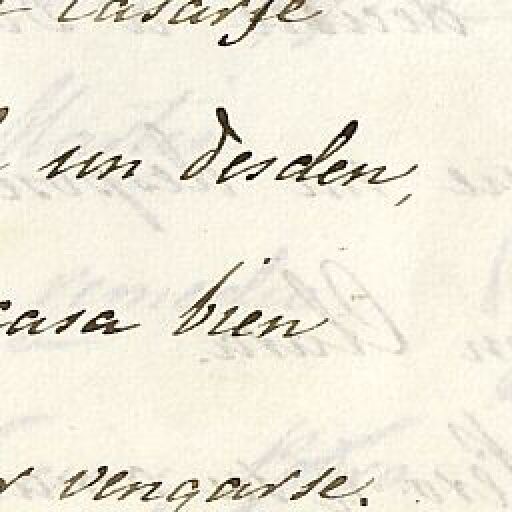 casarse
un desden,
casa bien
vengarse.